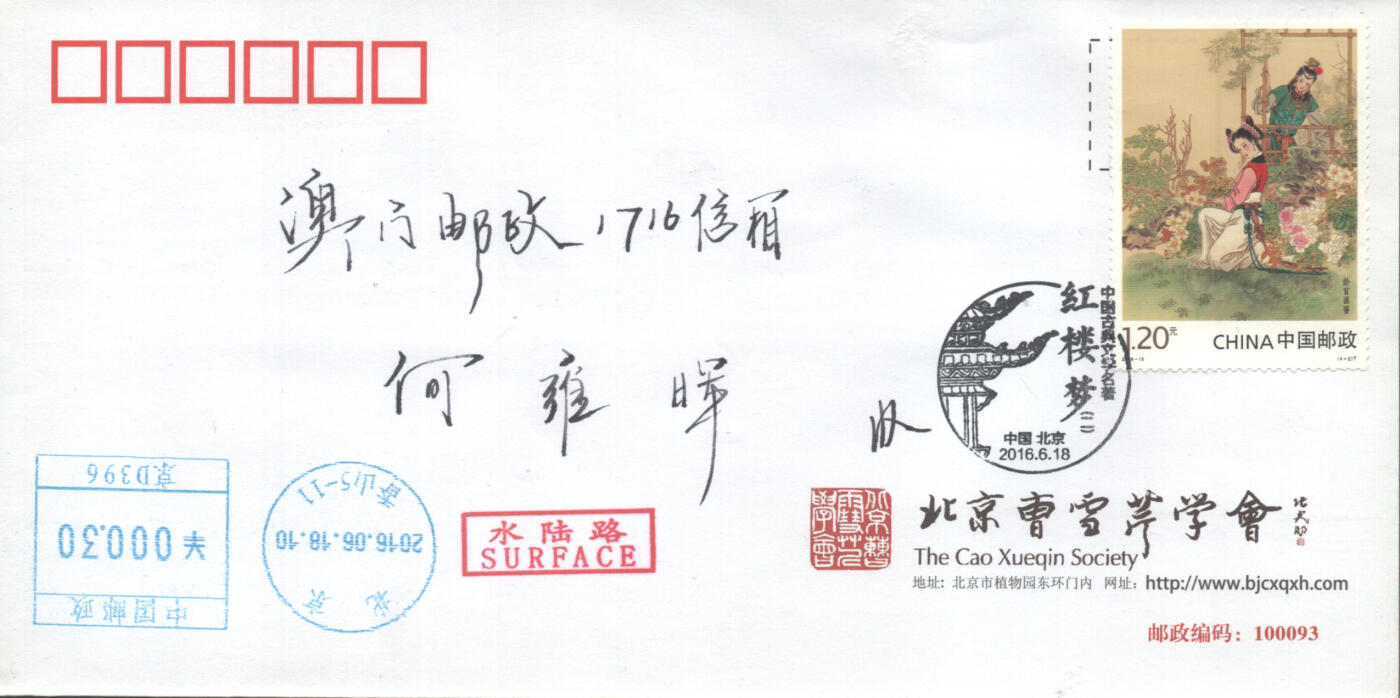 澳门邮政 1716信箱
何雍晖 收
1.20元
CHINA 中国邮政
(4-2)T
中国古典文学名著
红楼梦
(二)
中国 北京
2016.6.18
京D396
¥000.30
中国邮政
香山5-11
2016.06.18.10
北京
水陆路
SURFACE
北京曹雪芹学會
The Cao Xueqin Society
地址: 北京市植物园东环门内 网址: http://www.bjcxqxh.com
邮政编码: 100093